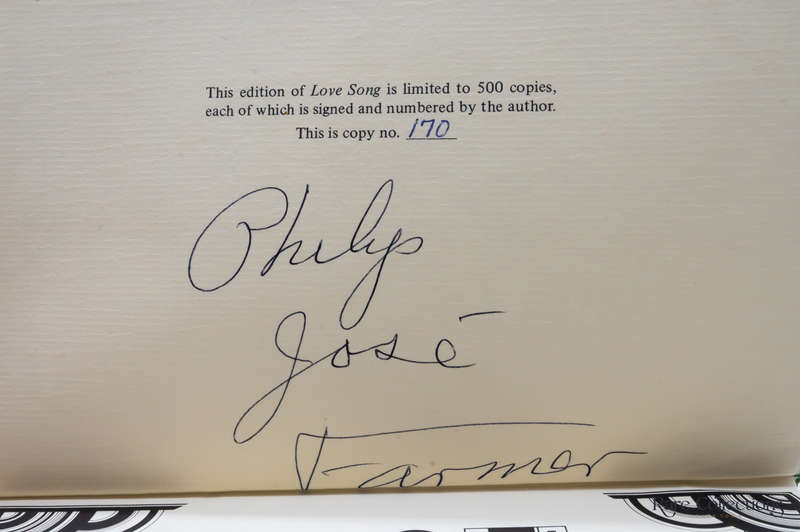 This edition of Love Song is limited to 500 copies,
each of which is signed and numbered by the author.
This is copy no. 170
Philip
José
Farmer
Rare Collections